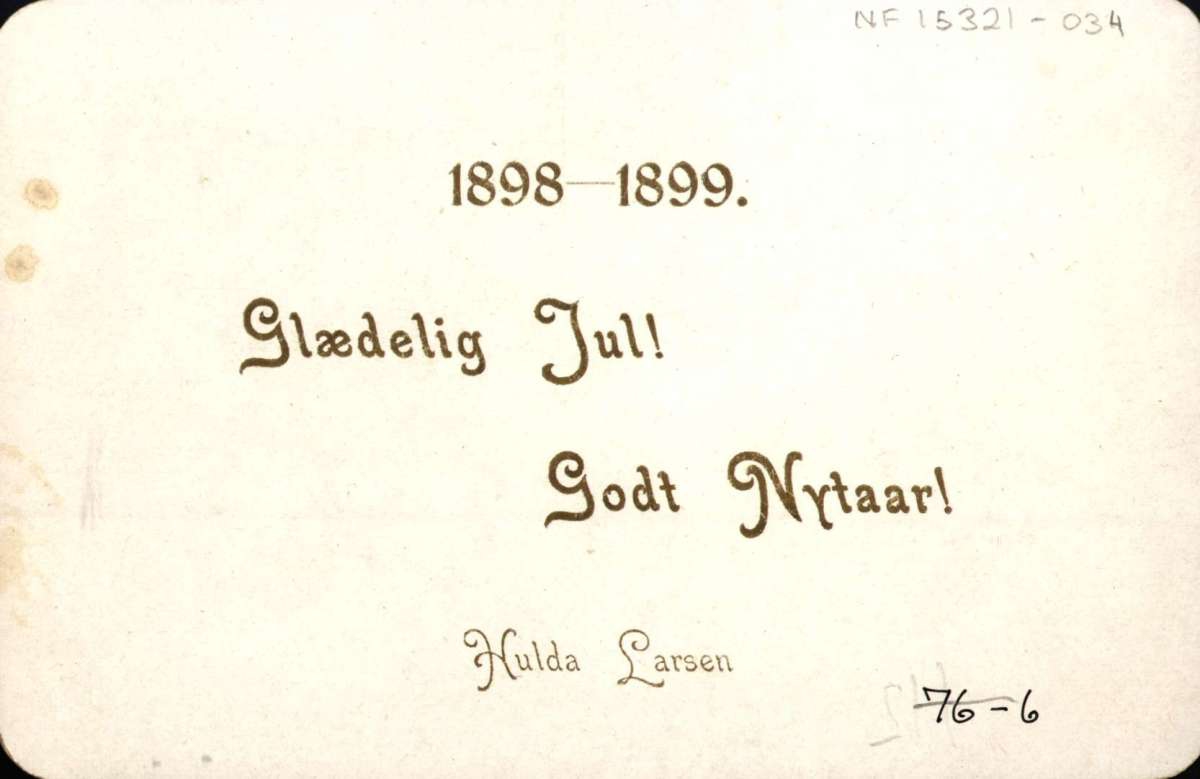 NF 15321-034
1898—1899.
Glædelig Jul!
Godt Nytaar!
Hulda Larsen
76-6